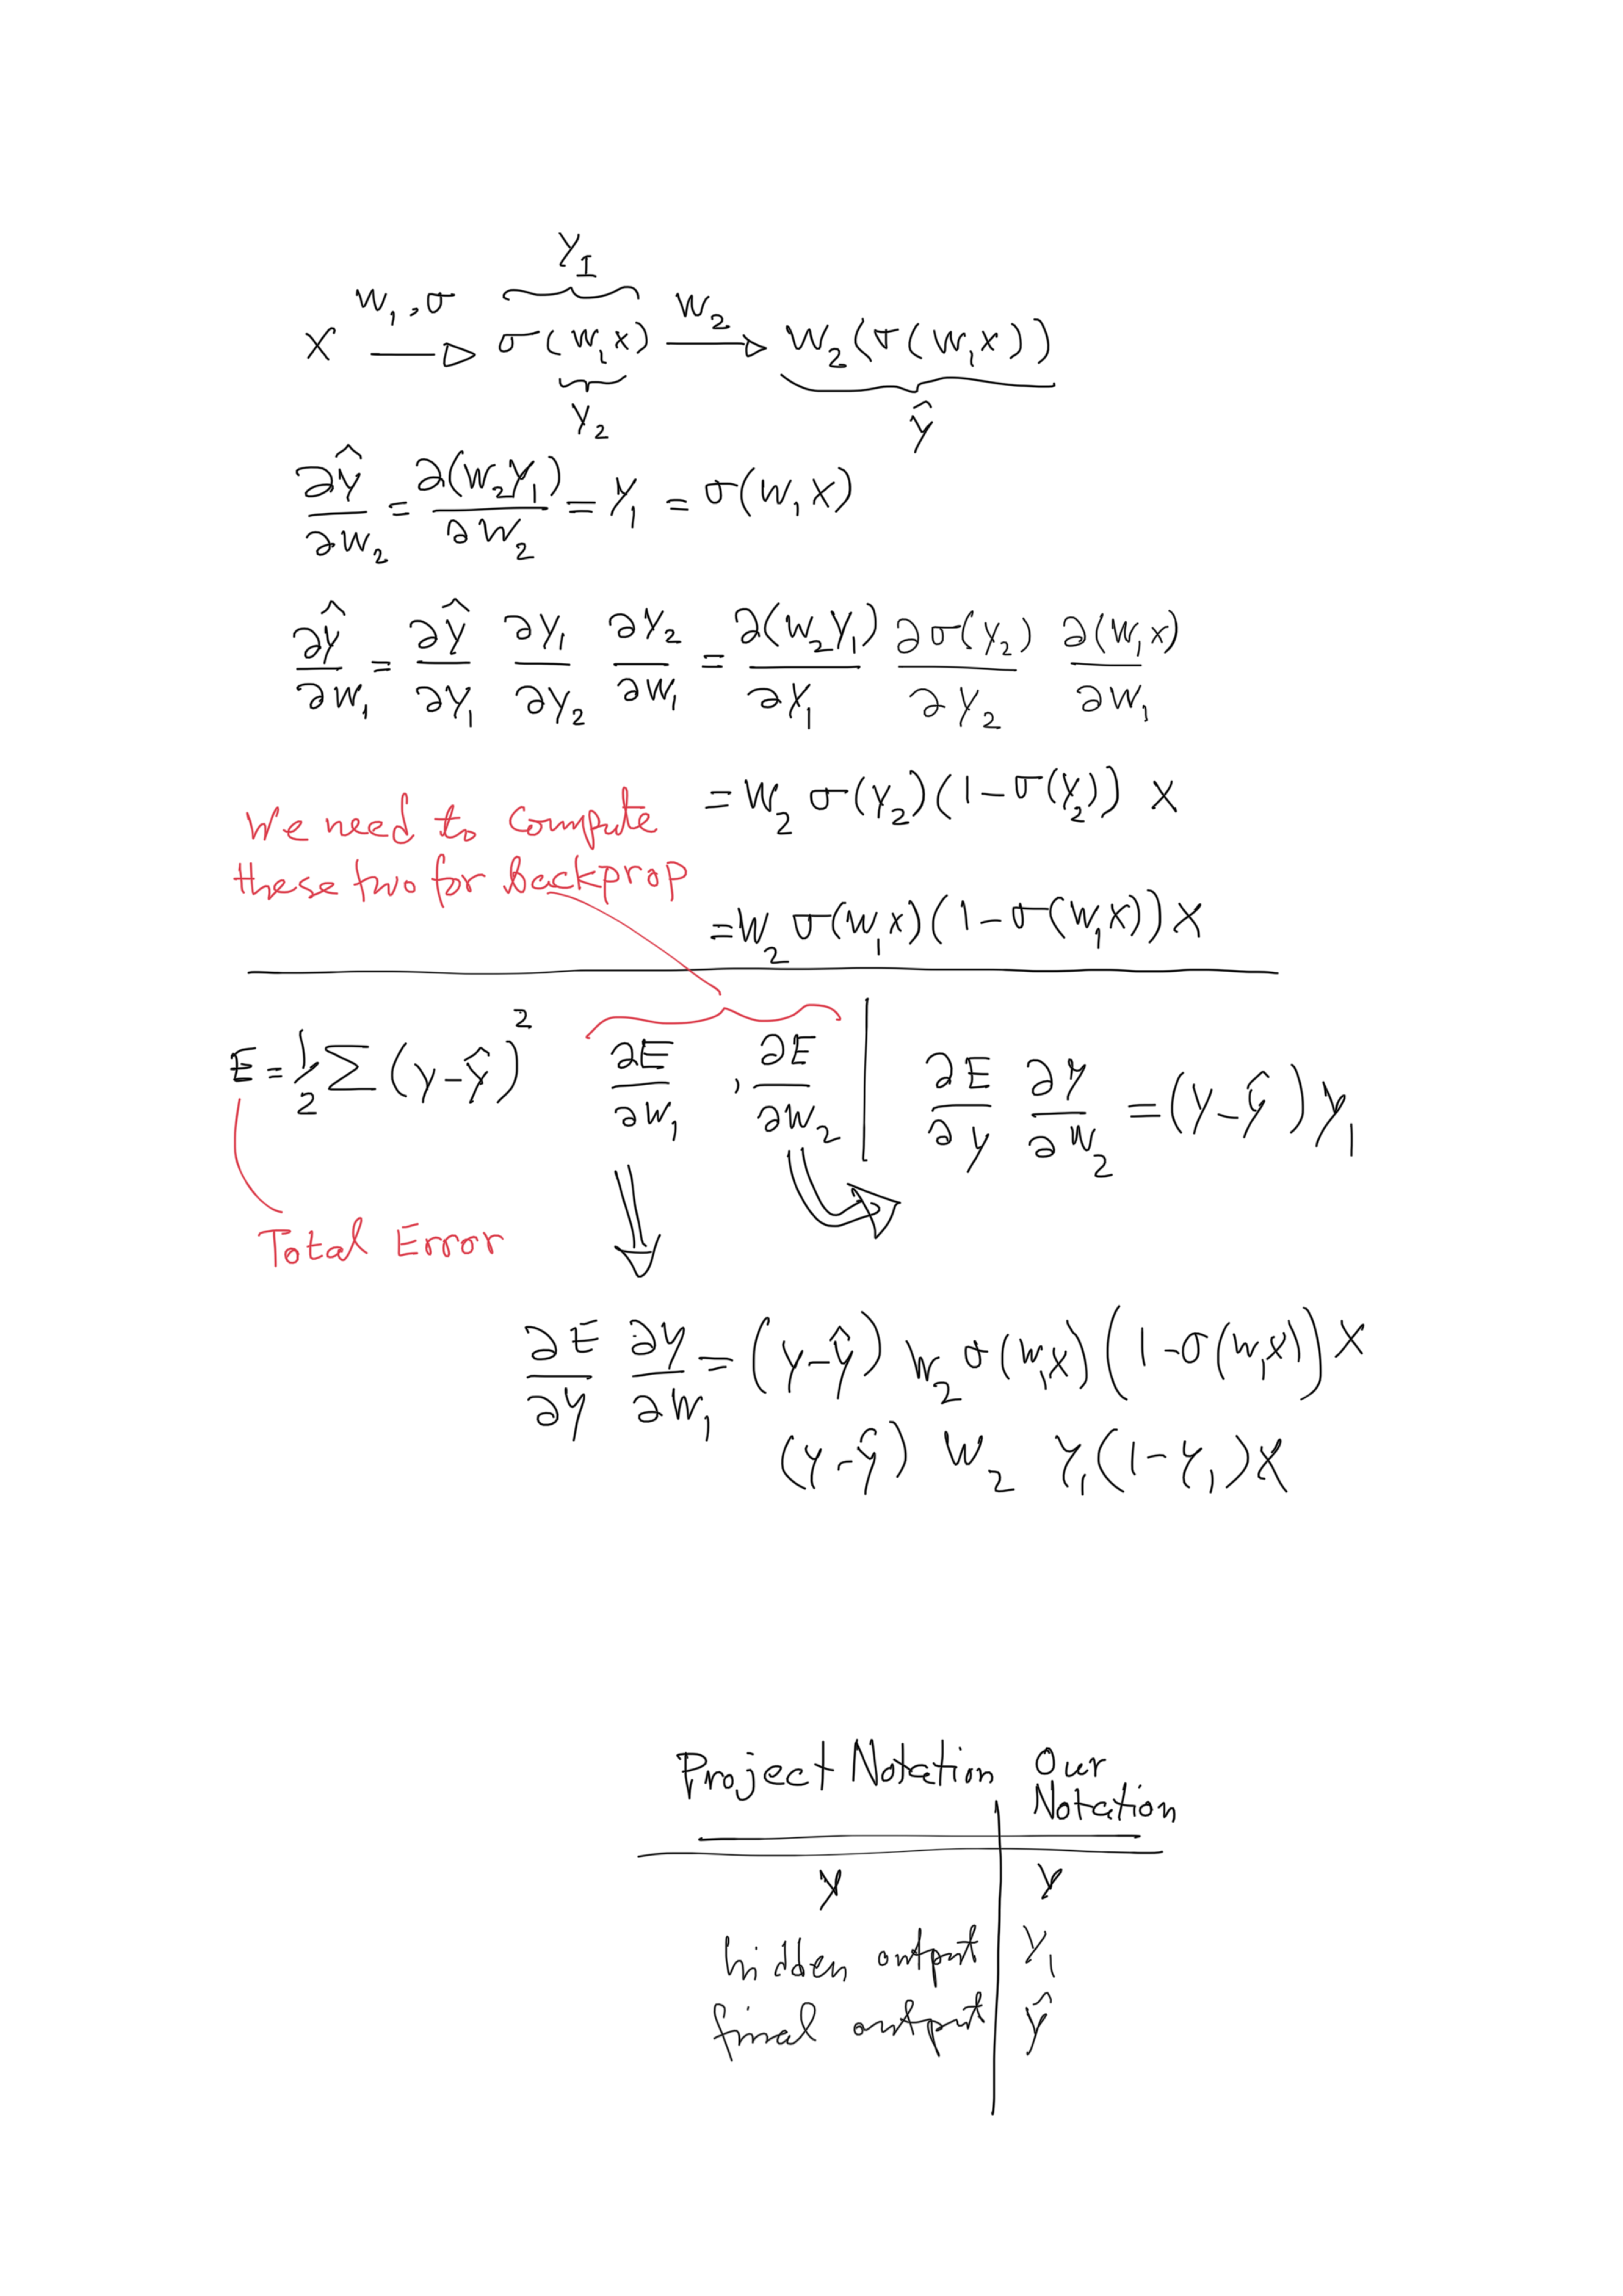 Y₁
X W₁,σ → σ(W₁x) W₂ → W₂(σ(W₁x))
Y₂ ŷ
∂ŷ/∂W₂ = ∂(W₂Y₁)/∂W₂ = Y₁ = σ(W₁X)
∂ŷ/∂W₁ = ∂ŷ/∂Y₁ ∂Y₁/∂Y₂ ∂Y₂/∂W₁ = ∂(W₂Y₁)/∂Y₁ ∂σ(Y₂)/∂Y₂ ∂(W₁x)/∂W₁
= W₂ σ(Y₂)(1-σ(Y₂)) X
We need to compute
these two for backprop
= W₂ σ(W₁x)(1-σ(W₁x)) X
E = 1/2 Σ (y-ŷ)² ∂E/∂W₁ , ∂E/∂W₂ | ∂E/∂y ∂y/∂W₂ = (y-ŷ) y₁
Total Error
∂E/∂y ∂y/∂W₁ = (y-ŷ) W₂ σ(W₁x)(1-σ(W₁x)) X
(y-ŷ) W₂ Y₁(1-Y₁)X
Project Notation Our Notation
y y
hidden output Y₁
final output ŷ